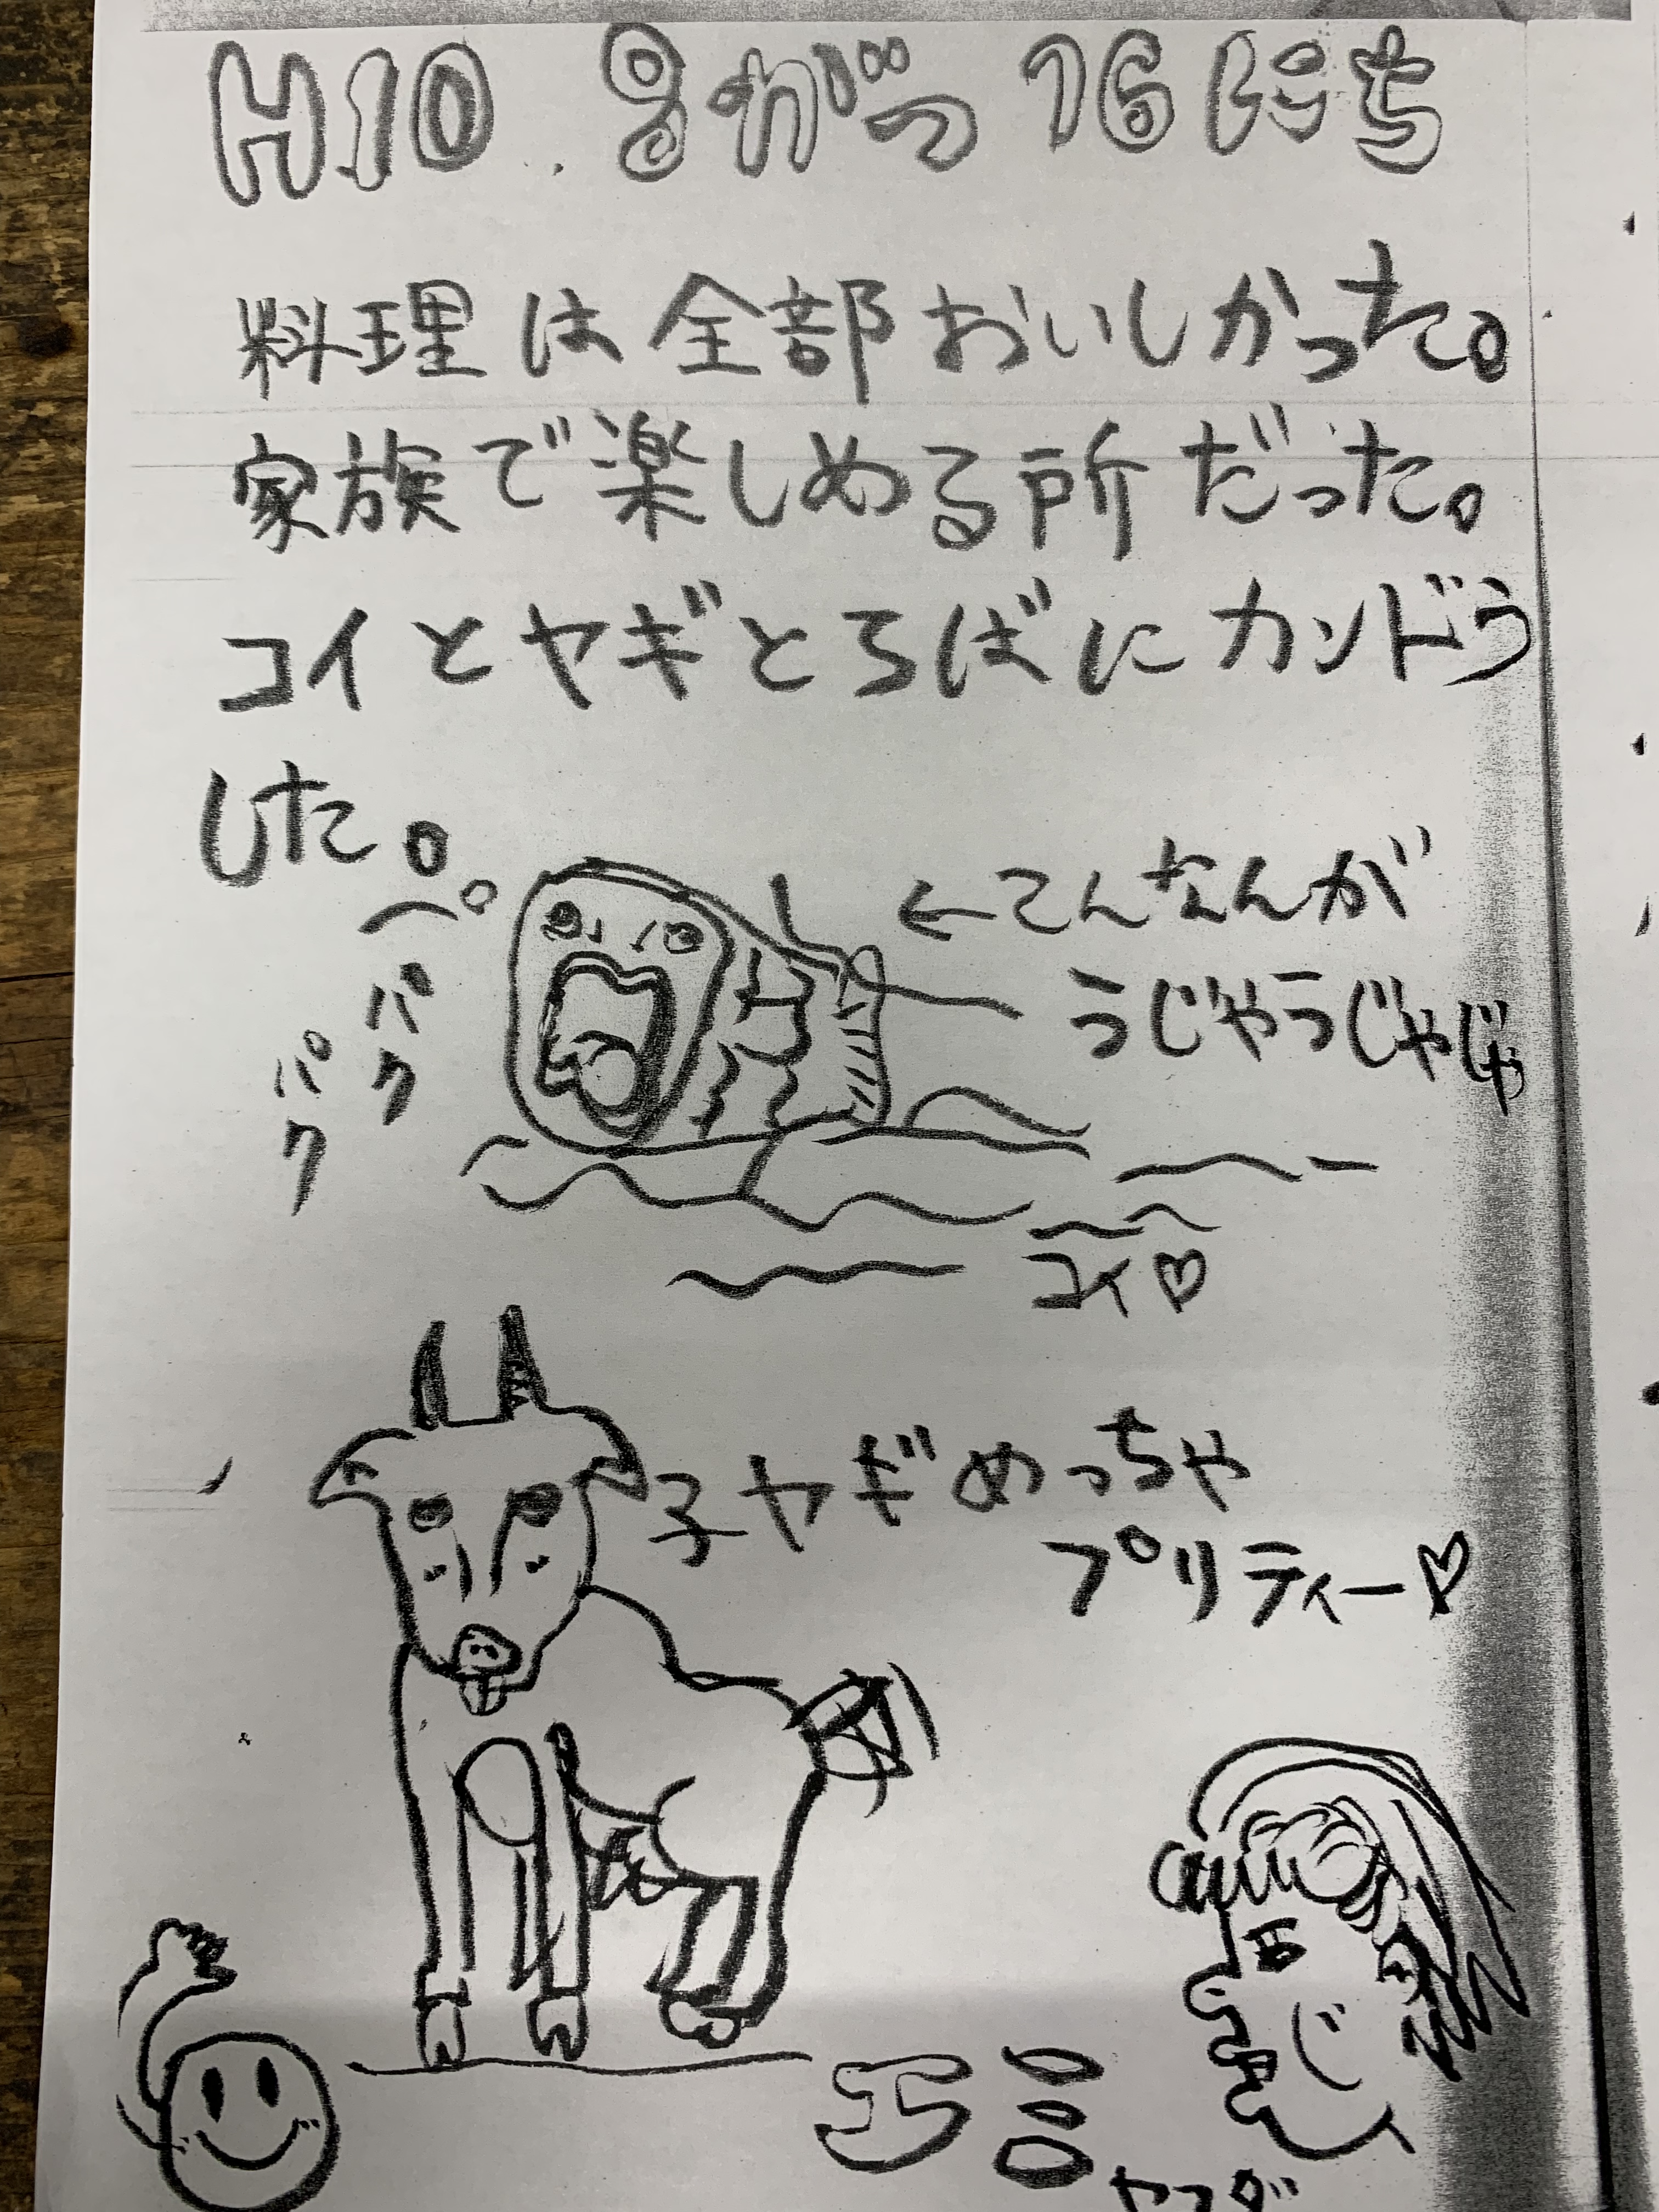 H10.8がつ16にち
料理は全部おいしかった。
家族で楽しめる所だった。
コイとヤギとろばにカンドう
した。
パクパク
←こんなんが
うじゃうじゃじゃ
コイ♡
子ヤギめっちゃ
プリティー♡